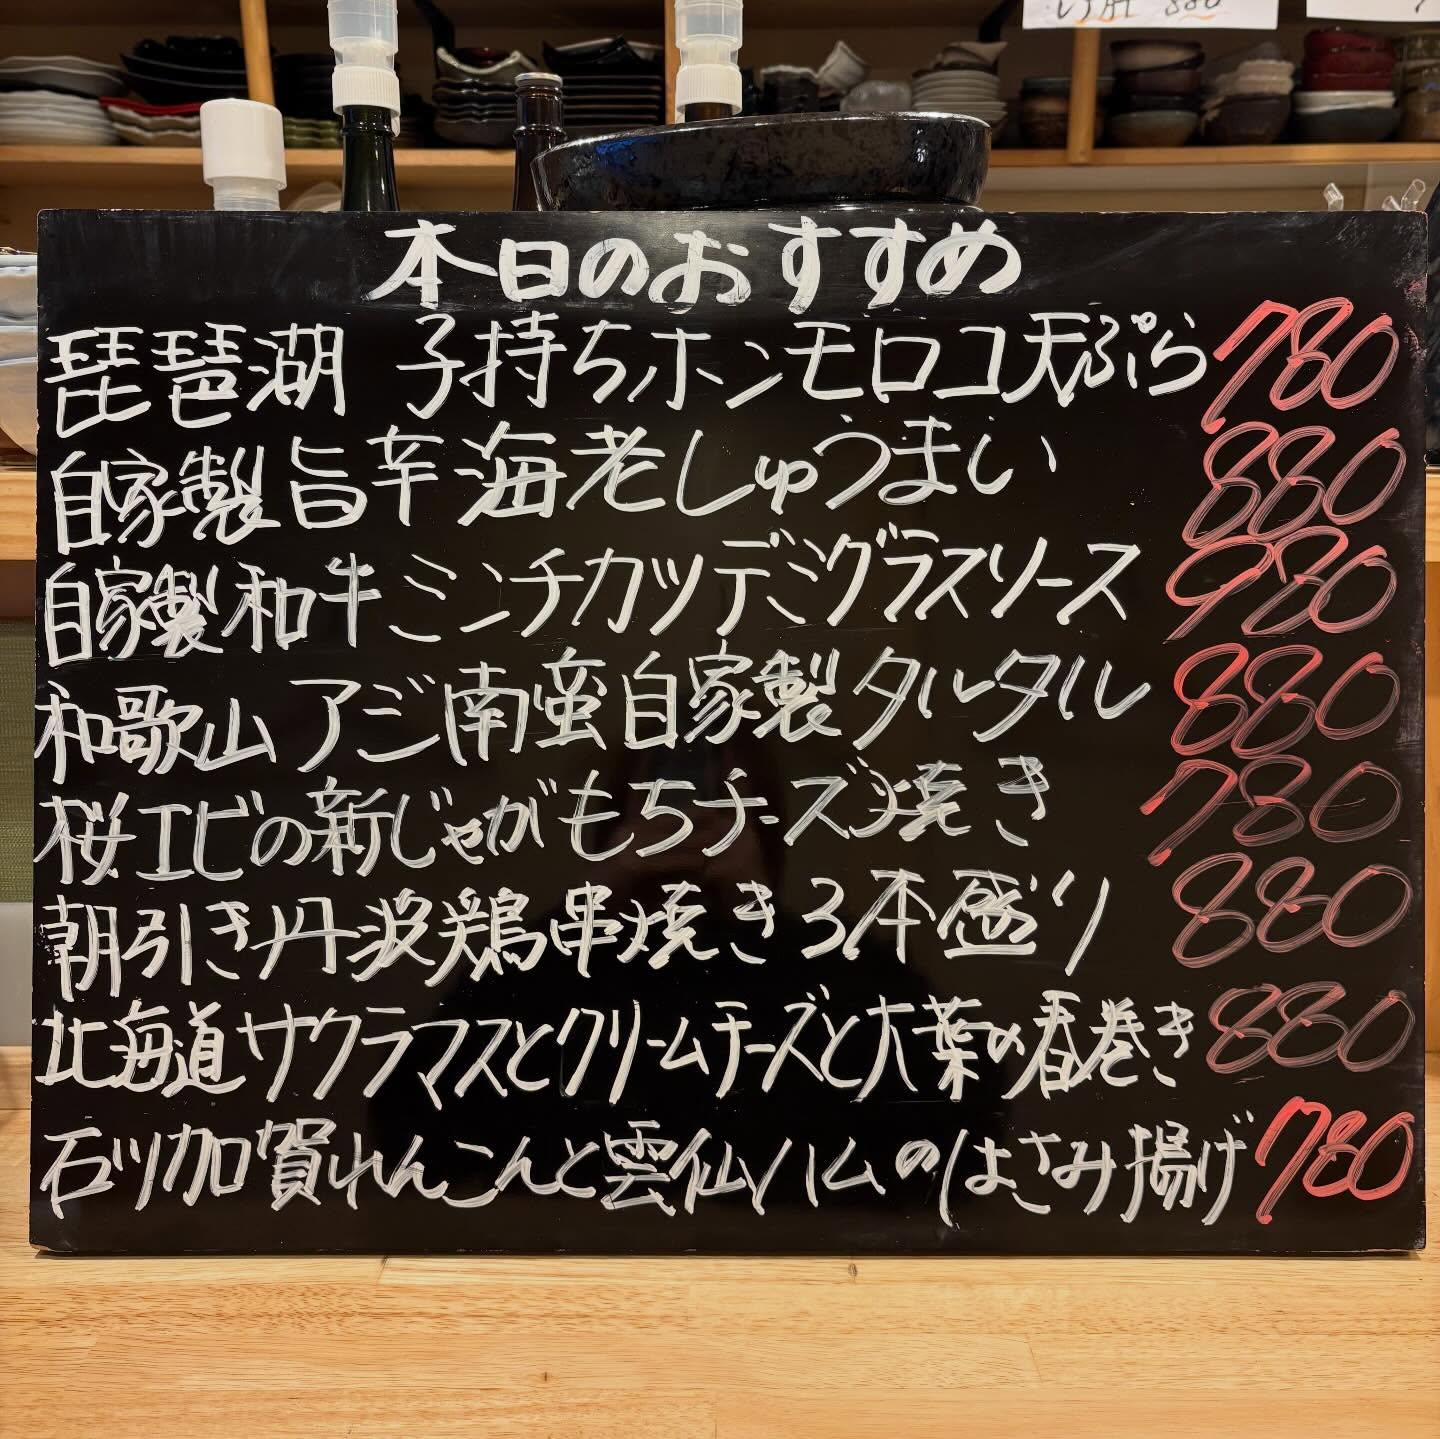 本日のおすすめ
琵琶湖 子持ちホンモロコ天ぷら 780
自家製旨辛海老しゅうまい 880
自家製和牛ミンチカツデミグラスソース 980
和歌山アジ南蛮自家製タルタル 880
桜エビの新じゃがもちチーズ焼き 780
朝引き丹波鶏串焼き3本盛り 880
北海道サクラマスとクリームチーズと大葉の春巻き 880
石川加賀れんこんと雲仙ハムのはさみ揚げ 780